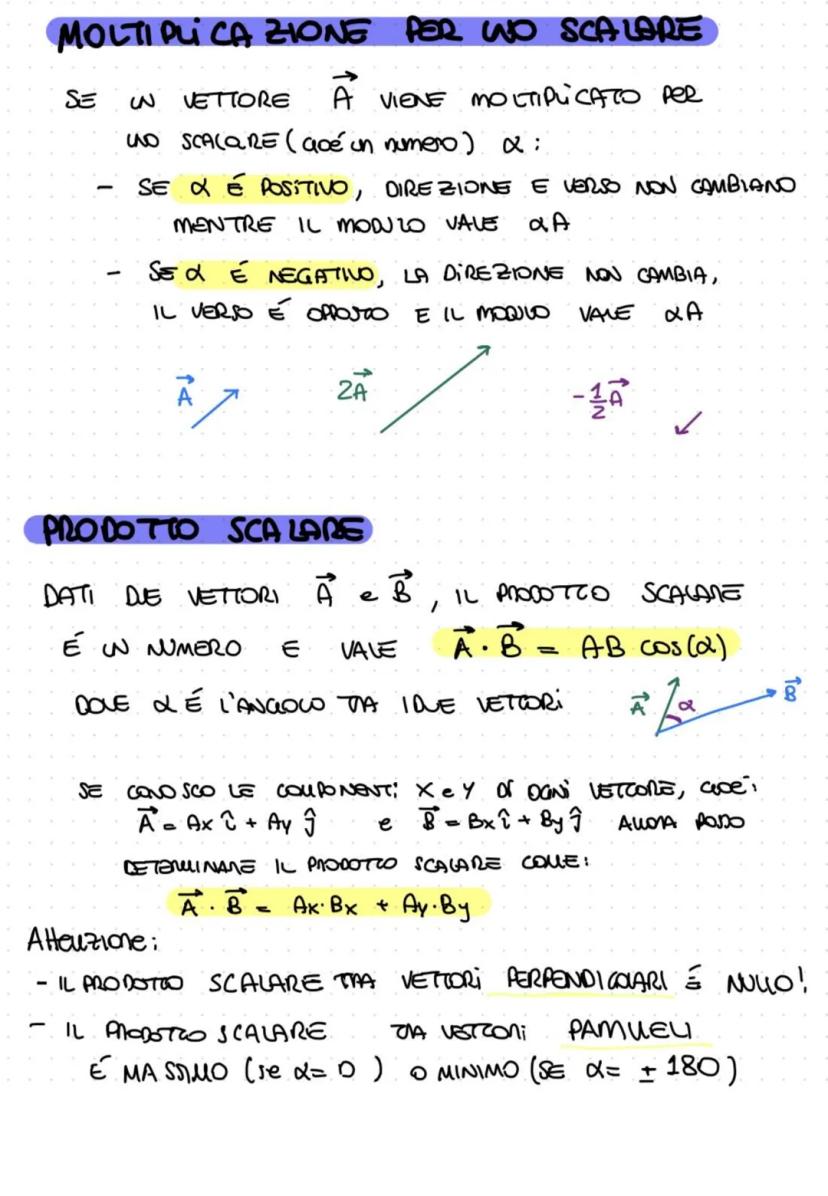 MOLTIPLICAZIONE PER UNO SCALARE
SE UN VETTORE A⃗ VIENE MOLTIPLICATO PER
UNO SCALARE (cioé un numero) α :
- SE α É POSITIVO, DIREZIONE E VERSO NON CAMBIANO
MENTRE IL MODULO VALE αA
- SE α É NEGATIVO, LA DIREZIONE NON CAMBIA,
IL VERSO É OPPOSTO E IL MODULO VALE αA
A⃗ 2A⃗ -1/2 A⃗
PRODOTTO SCALARE
DATI DUE VETTORI A⃗ e B⃗, IL PRODOTTO SCALARE
É UN NUMERO E VALE A⃗ · B⃗ = AB cos(α)
DOVE α É L'ANGOLO TRA I DUE VETTORI A⃗ α B⃗
SE CONOSCO LE COMPONENTI X e Y DI OGNI VETTORE, cioé:
A⃗ = Ax î + Ay ĵ e B⃗ = Bx î + By ĵ ALLORA POSSO
DETERMINARE IL PRODOTTO SCALARE COME:
A⃗ · B⃗ = Ax·Bx + Ay·By
Attenzione:
- IL PRODOTTO SCALARE TRA VETTORI PERPENDICOLARI É NULLO!
- IL PRODOTTO SCALARE TRA VETTORI PARALLELI
É MASSIMO (se α= 0 ) O MINIMO (SE α= ± 180)